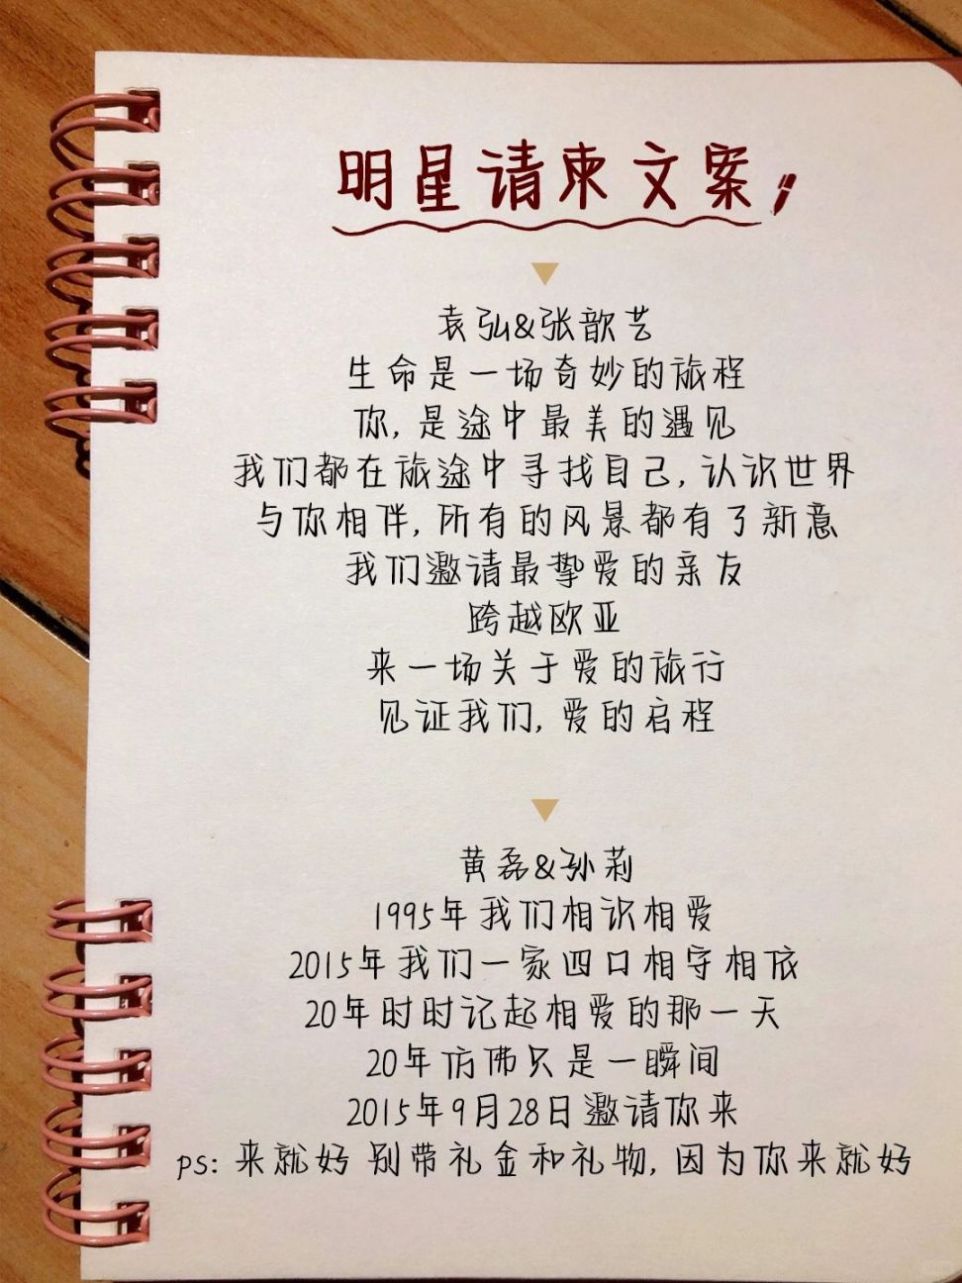 明星请柬文案
袁弘&张歆艺
生命是一场奇妙的旅程
你,是途中最美的遇见
我们都在旅途中寻找自己,认识世界
与你相伴,所有的风景都有了新意
我们邀请最挚爱的亲友
跨越欧亚
来一场关于爱的旅行
见证我们,爱的启程
黄磊&孙莉
1995年我们相识相爱
2015年我们一家四口相守相依
20年时时记起相爱的那一天
20年仿佛只是一瞬间
2015年9月28日邀请你来
ps: 来就好 别带礼金和礼物,因为你来就好